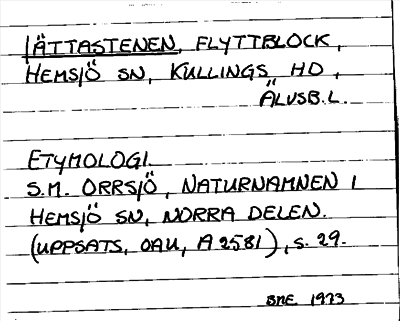 JÄTTASTENEN, FLYTTBLOCK,
HEMSJÖ SN, KULLINGS HD,
ÄLVSB. L.
ETYMOLOGI
S.M. ORRSJÖ, NATURNAMNEN I
HEMSJÖ SN, NORRA DELEN.
(UPPSATS, OAU, A 2581), S. 29.
SME 1973